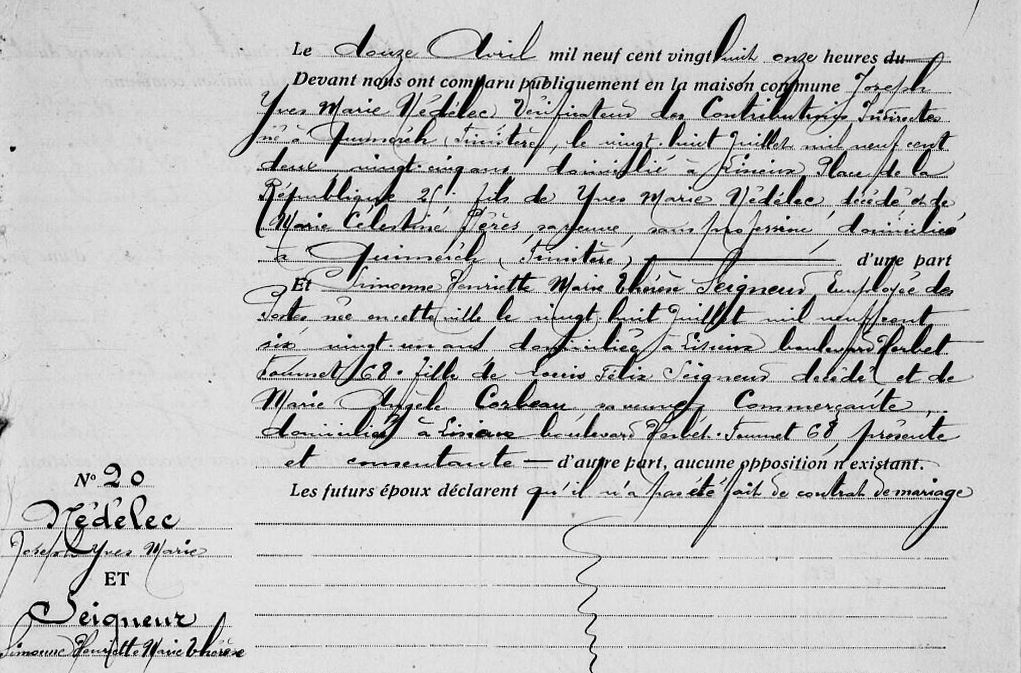 Le douze Avril mil neuf cent vingt huit onze heures du
Devant nous ont comparu publiquement en la maison commune Joseph
Yves Marie Nédélec Vérificateur des Contributions Indirectes
né à Quimerch (Finistère), le vingt huit Juillet mil neuf cent
deux vingt-cinq ans domicilié à Lisieux Place de la
République 25, fils de Yves Marie Nédélec, décédé et de
Marie Célestine Pérès, sa veuve, sans profession, domiciliée
à Quimerch (Finistère) d'une part
Et Simonne Henriette Marie Thérèse Seigneur Employée des
Postes née en cette ville le vingt huit Juillet mil neuf cent
six vingt un ans domiciliée à Lisieux boulevard Herbet
Fournet 68. fille de Louis Félix Seigneur décédé et de
Marie Angèle Corbeau, sa veuve, Commerçante,
domiciliée à Lisieux boulevard Herbet-Fournet 68, présente
et consentante — d'autre part, aucune opposition n'existant.
Les futurs époux déclarent qu'il n'a pas été fait de contrat de mariage
N° 20
Nédélec
Joseph Yves Marie
ET
Seigneur
Simonne Henriette Marie Thérèse